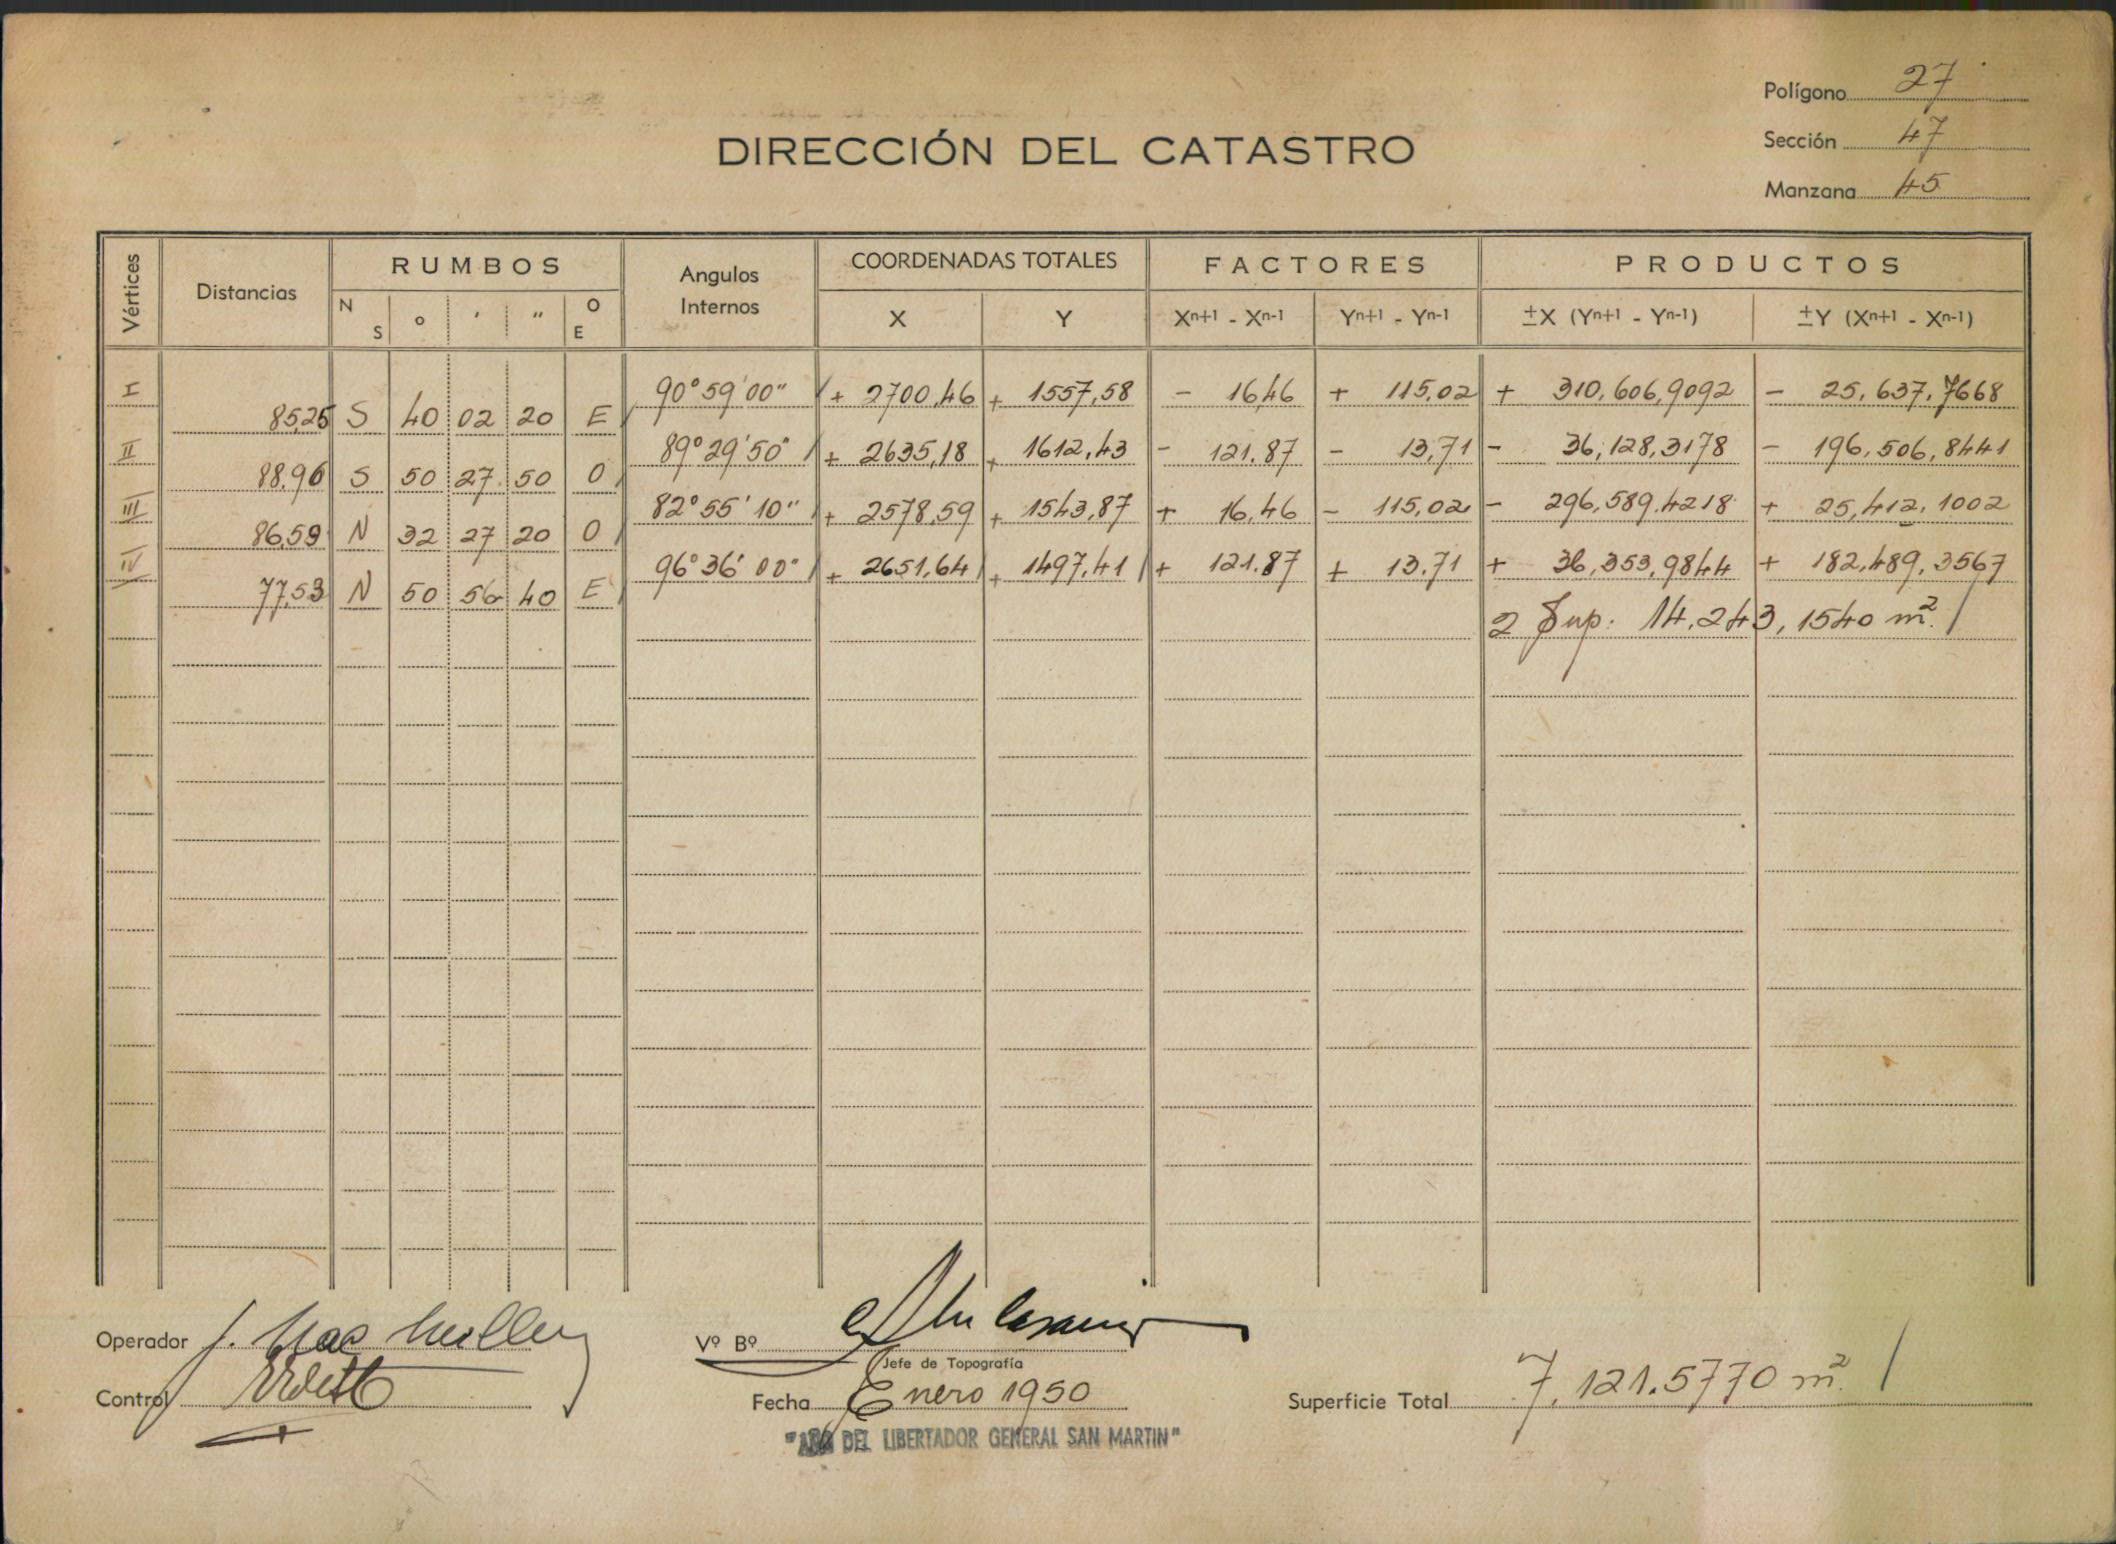 Polígono 27
Sección 47
Manzana 45
DIRECCIÓN DEL CATASTRO
Vértices Distancias RUMBOS Angulos Internos COORDENADAS TOTALES FACTORES PRODUCTOS
N S ° ' " O E X Y Xn+1 - Xn-1 Yn+1 - Yn-1 ±X (Yn+1 - Yn-1) ±Y (Xn+1 - Xn-1)
I 90°59'00" + 2700,46 + 1557,58 - 16,46 + 115,02 + 310,606,9092 - 25,637,7668
85,25 S 40 02 20 E
II 89°29'50" + 2635,18 + 1612,43 - 121.87 - 13,71 - 36,128,3178 - 196,506,8441
88,96 S 50 27 50 O
III 82°55'10" + 2578,59 + 1543,87 + 16,46 - 115,02 - 296,589.4218 + 25,412,1002
86,59 N 32 27 20 O
IV 96°36'00" + 2651,64 + 1497,41 + 121.87 + 13.71 + 36,353,9844 + 182,489,3567
77,53 N 50 56 40 E
2 Sup: 14,243,1540 m².
Operador J. Mac
Vº Bº
Jefe de Topografía
Control
Fecha Enero 1950
Superficie Total 7,121.5770 m².
"AÑO DEL LIBERTADOR GENERAL SAN MARTIN"